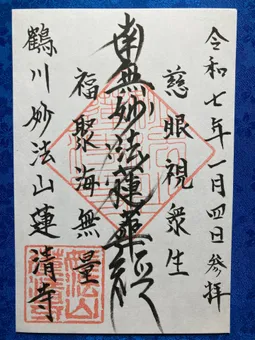 令和七年一月四日参拝
慈眼視衆生
南無妙法蓮華経
福聚海無量
鶴川妙法山蓮清寺